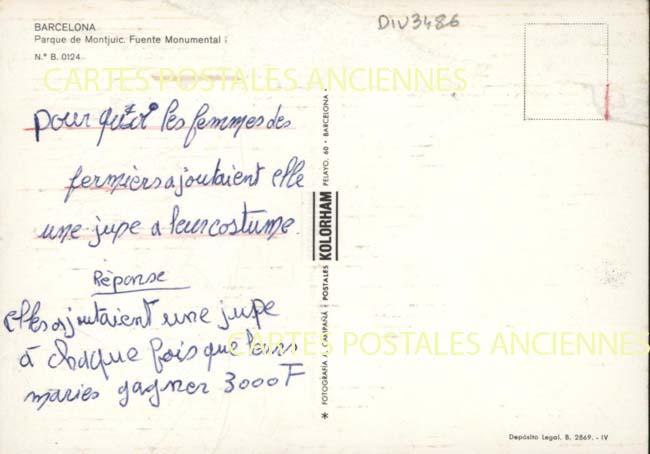 BARCELONA
Parque de Montjuic. Fuente Monumental
N.° B. 0124
DIV3486
CARTES POSTALES ANCIENNES
pour quoi les femmes des
fermiers ajoutaient elle
une jupe a leur costume
Réponse
elles ajoutaient une jupe
à chaque fois que leurs
maries gagner 3000F
CARTES POSTALES ANCIENNES
* FOTOGRAFIA J. CAMPAÑÁ · POSTALES KOLORHAM PELAYO, 60 · BARCELONA ·
Depósito Legal, B. 2869. - IV